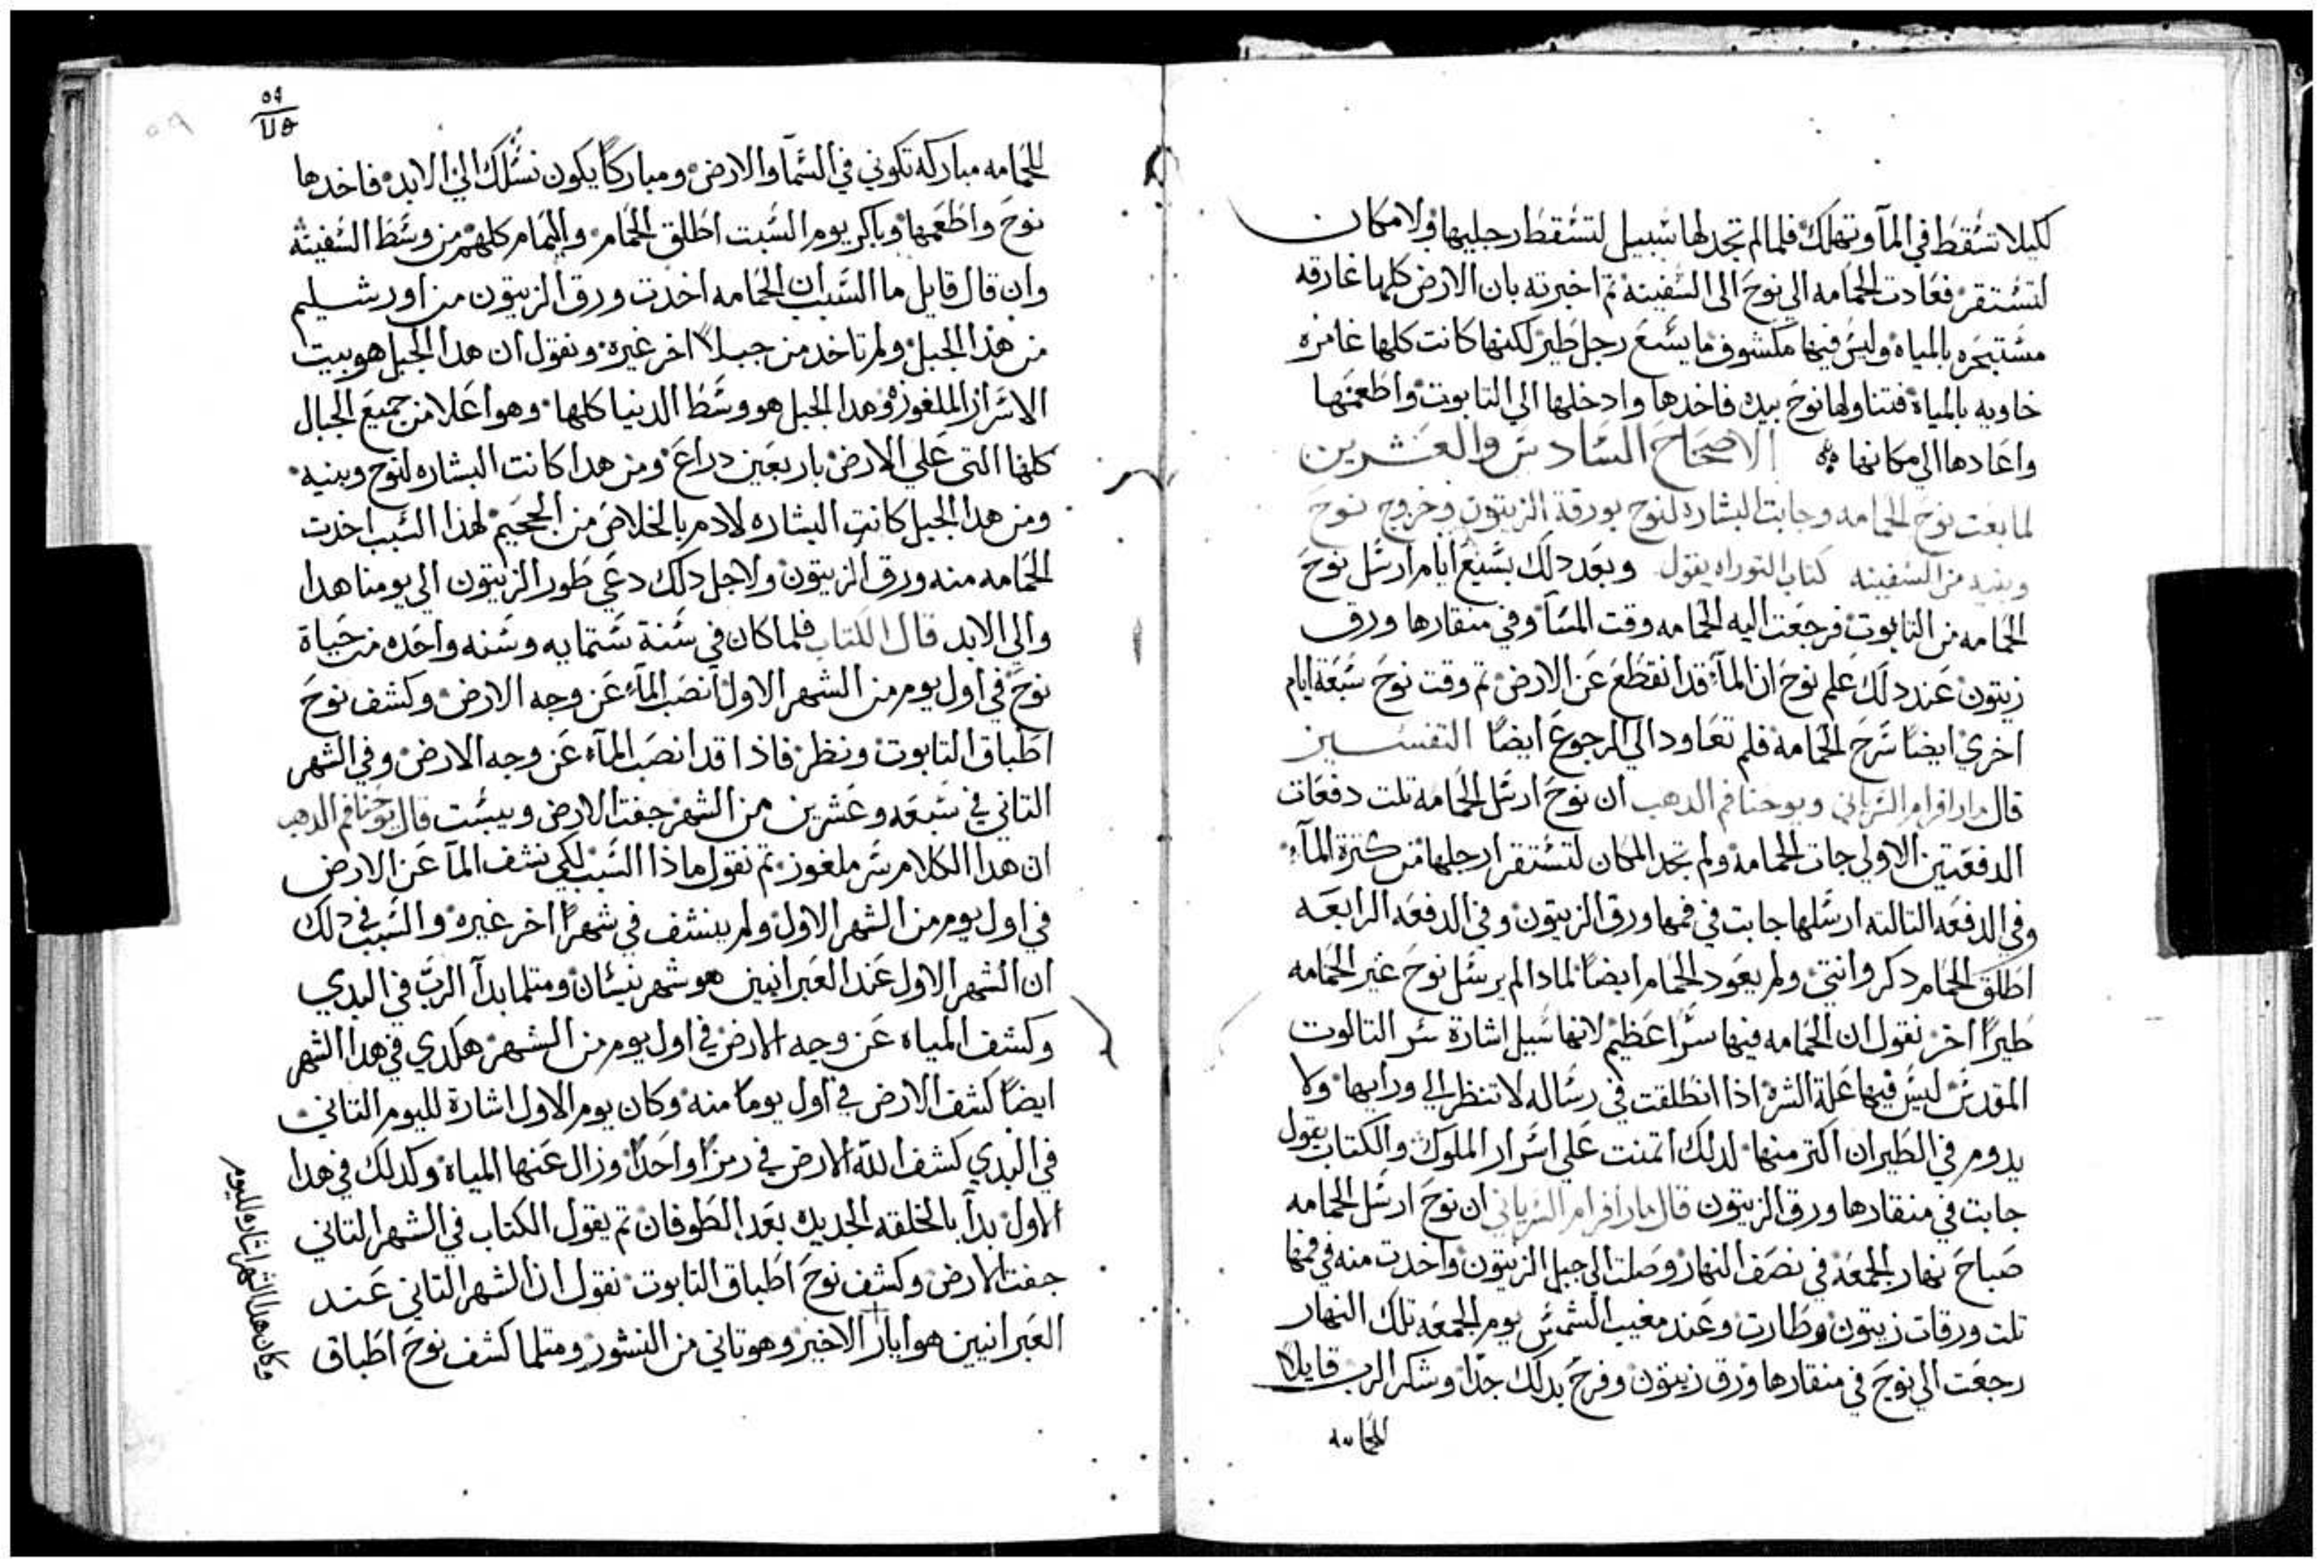 لكيلا تسقط في المآ وتهلك فلما لم تجد لها سبيل لتسقط رجليها ولا مكان
لتستقر فعادت الحمامه الي نوح الى السفينه تم اخبرته بان الارض كلها غارقه
مستبحره بالمياه وليس فيها مكشوف ما يسع رجل طير لكنها كانت كلها غامره
خاويه بالمياه فتناولها نوح بيده فاخدها وادخلها الي التابوت واطعمها
واعادها الي مكانها الاصحاح السادس والعشرين
لما بعت نوح الحمامه وجابت البشاره لنوح بورقة الزيتون وخروج نوح
وبنيه من السفينه كتاب التوراه يقول وبعد دلك بسبع ايام ارسل نوح
الحمامه من التابوت فرجعت اليه الحمامه وقت المسآ وفي منقارها ورق
زيتون عند دلك علم نوح ان المآء قد انقطع عن الارض تم وقت نوح سبعة ايام
اخري ايضاً سرح الحمامه فلم تعاود الي الرجوع ايضاً التفسير
قال مار افرام السرياني ويوحنا فم الدهب ان نوح ارسل الحمامه تلت دفعات
الدفعتين الاولي جات الحمامه ولم تجد المكان لتستقر ارجلها من كترة المآء
وفي الدفعه التالته ارسلها جابت في فمها ورق الزيتون وفي الدفعه الرابعه
اطلق الحمام دكر وانتي ولم يعود الحمام ايضاً لمادا لم يرسل نوح غير الحمامه
طيراً اخر نقول ان الحمامه فيها سراً عظيم لانها سبيل اشارة سر التالوت
المقدس ليس فيها علة الشره اذا انطلقت في رساله لا تنظر الي ورايها ولا
يدوم في الطيران اكتر منها لدلك اتمنت علي اسرار الملوك والكتاب يقول
جابت في منقارها ورق الزيتون قال مار افرام السرياني ان نوح ارسل الحمامه
صباح نهار الجمعه في نصف النهار وصلت الي جبل الزيتون واخدت منه في فمها
تلت ورقات زيتون وطارت وعند مغيب الشمس يوم الجمعه تلك النهار
رجعت الي نوح في منقارها ورق زيتون وفرح بدلك جداً وشكر الرب قايلاً
الحمامه
٥٩
للحمامه مباركه تكوني في السمآ والارض ومباركاً يكون نسلك الي الابد فاخدها
نوح واطعمها وباكر يوم السبت اطلق الحمام واليمام كلهم من وسط السفينه
وان قال قايل ما السبب ان الحمامه اخدت ورق الزيتون من اورشليم
من هذا الجبل ولم تاخد من جبلاً اخر غيره ونقول ان هدا الجبل هو بيت
الاسرار الملغوزه وهدا الجبل هو وسط الدنيا كلها وهو اعلا من جميع الجبال
كلها التي علي الارض باربعين دراع ومن هدا كانت البشاره لنوح وبنيه
ومن هدا الجبل كانت البشاره لادم بالخلاص من الجحيم لهذا السبب اخدت
الحمامه منه ورق الزيتون ولاجل دلك دعي طور الزيتون الي يومنا هدا
والي الابد قال الكتاب فلما كان في سنة ستمايه وسنه واحده من حياة
نوح في اول يوم من الشهر الاول انصب المآء عن وجه الارض وكشف نوح
اطباق التابوت ونظر فاذا قد انصب المآء عن وجه الارض وفي الشهر
التاني في سبعه وعشرين من الشهر جفت الارض ويبست قال يوحنا فم الدهب
ان هدا الكلام سر ملغوز تم نقول ماذا السبب لكي نشف المآ عن الارض
في اول يوم من الشهر الاول ولم ينشف في شهراً اخر غيره والسبب في دلك
ان الشهر الاول عند العبرانيين هو شهر نيسان ومتلما بدآ الرب في البدي
وكشف المياه عن وجه الارض في اول يوم من الشهر هكدي في هدا الشهر
ايضاً كشف الارض في اول يوماً منه وكان يوم الاول اشارة لليوم التاني
في البدي كشف الله الارض في رمزاً واحداً وزال عنها المياه وكدلك في هدا
الاول بدآ بالخلقه الجديده بعد الطوفان تم يقول الكتاب في الشهر التاني
جفت الارض وكشف نوح اطباق التابوت نقول ان الشهر التاني عند
العبرانيين هو ايار الاخير وهو تاني من النشور ومتلما كشف نوح اطباق
وكان هدا الشهر اشاره لليوم